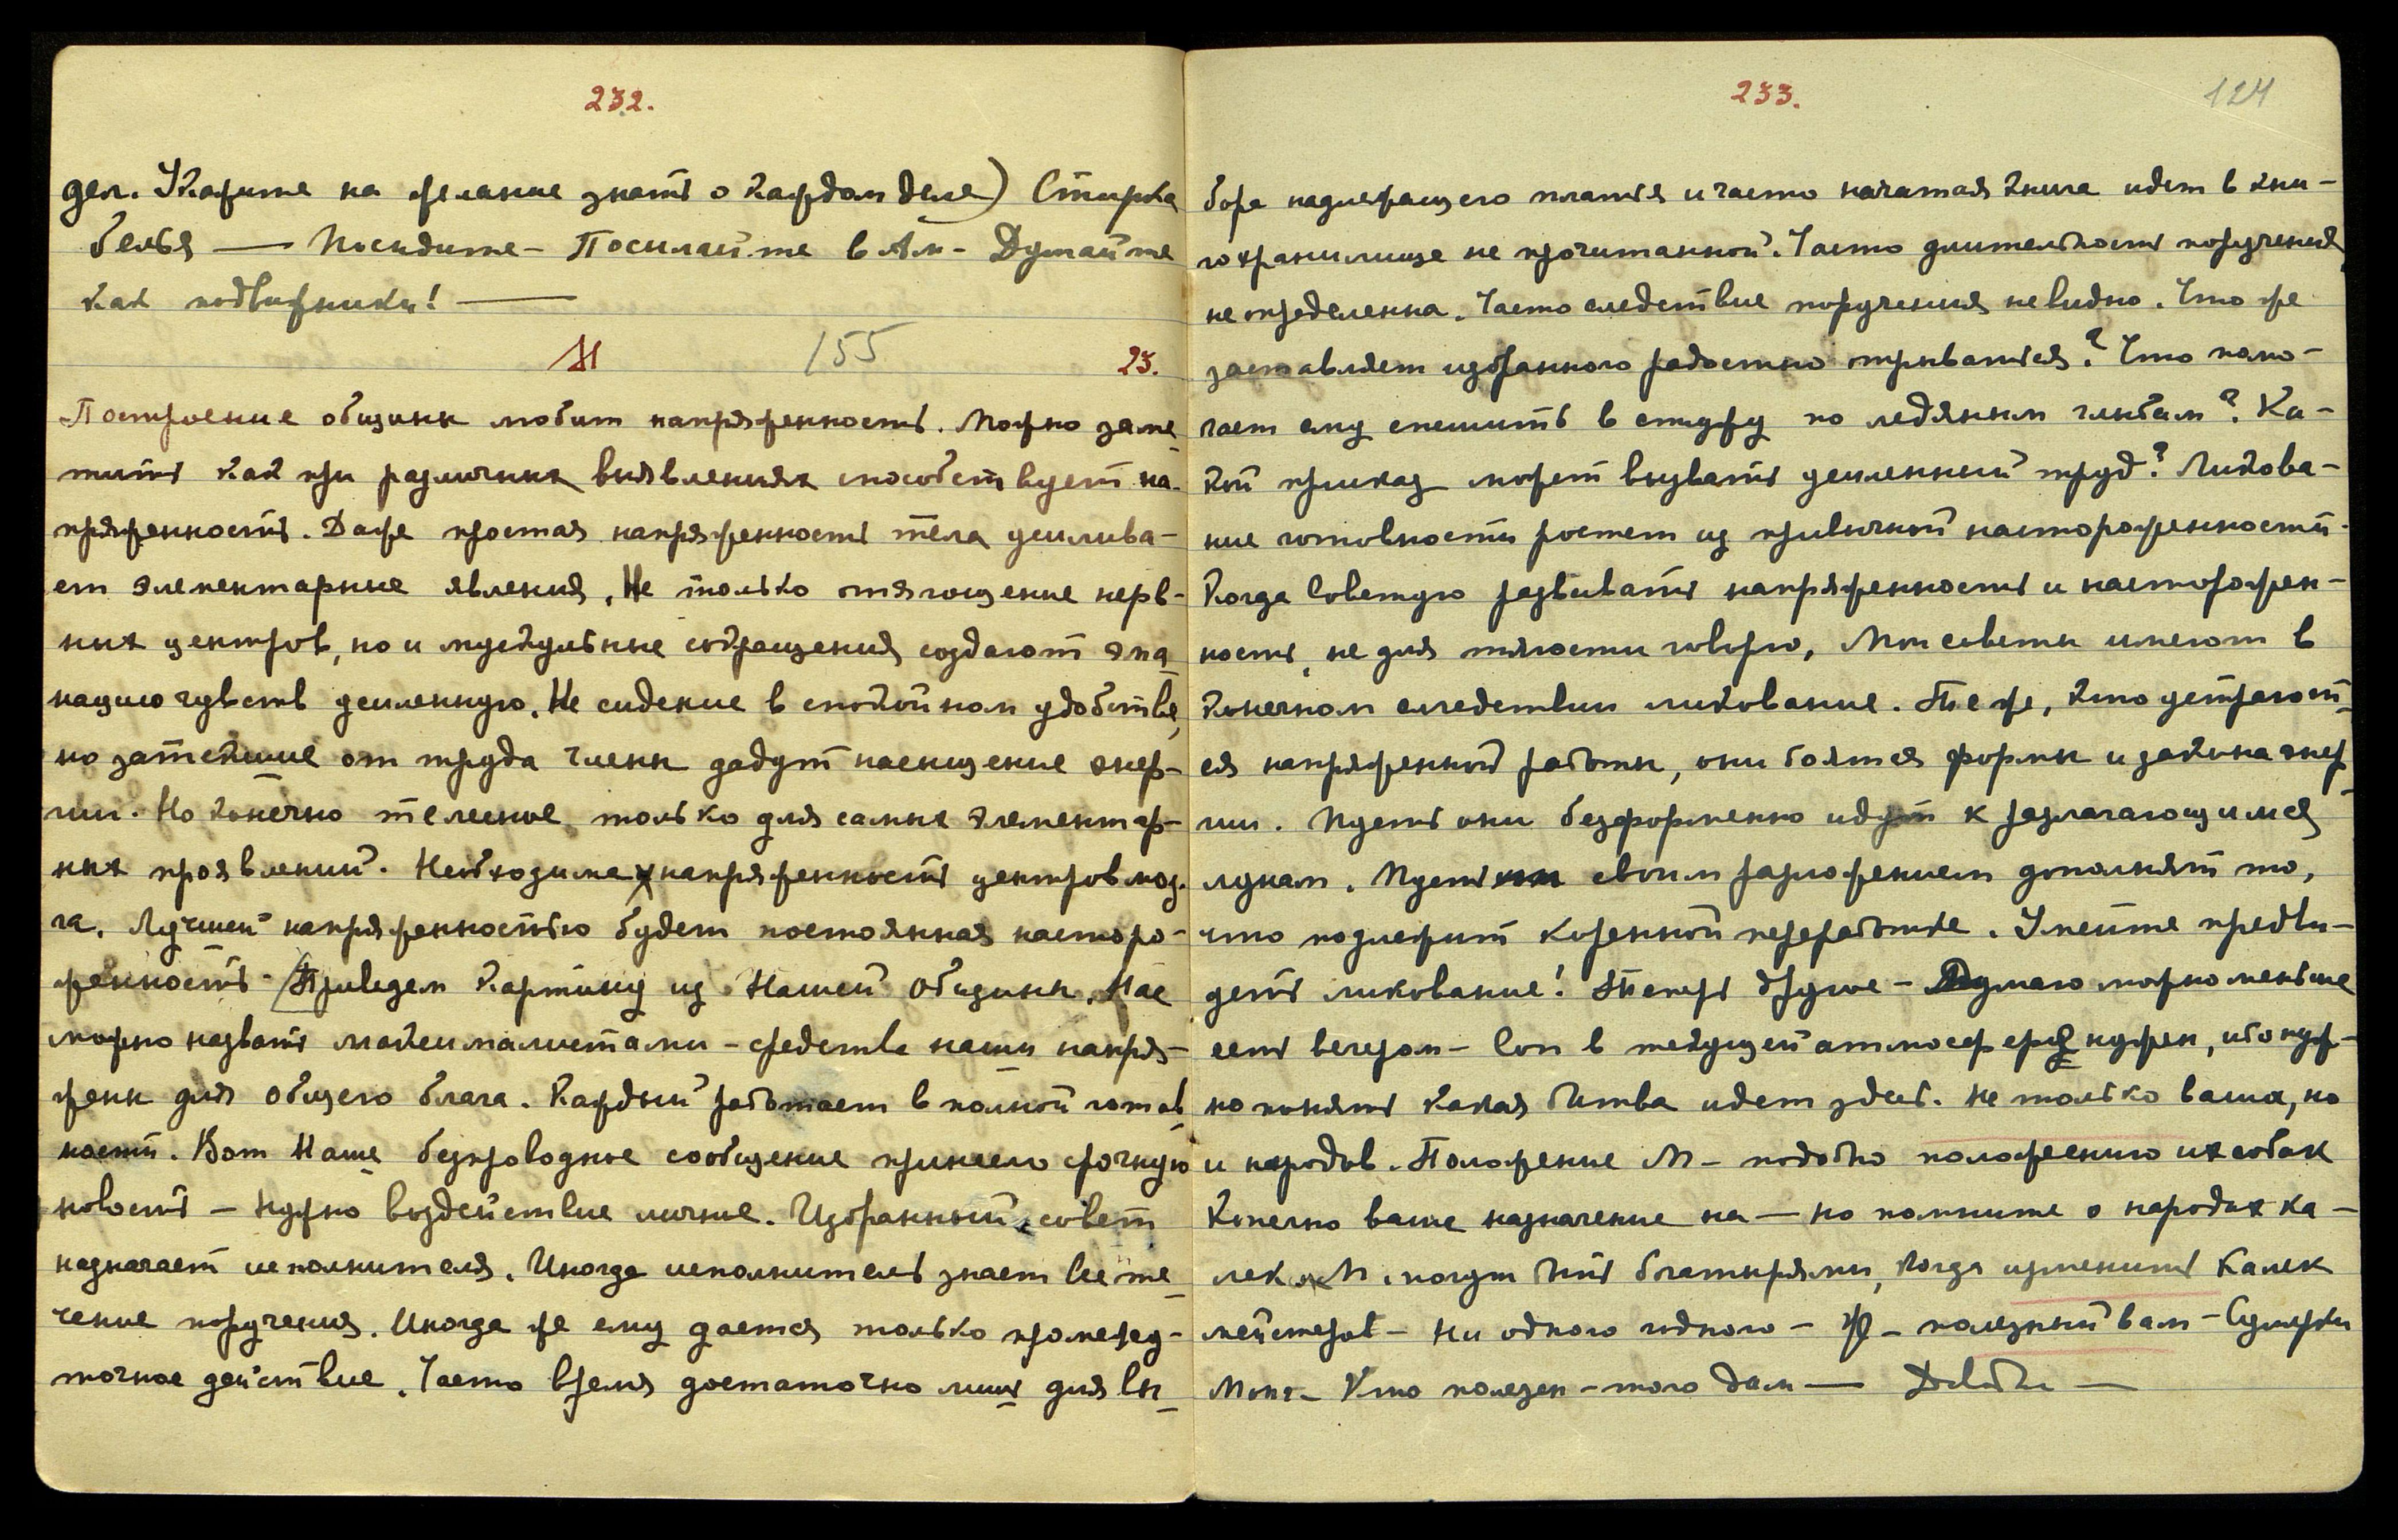 232.
дел. Укажите на желание знать о каждом деле) Стирка
белья — Посидите — Посылайте в Ам — Думайте
как подвижники! —
М 155 23.
Построение общины любит напряженность. Можно заме-
тить как при различных выявлениях способствует на-
пряженность. Даже простая напряженность тела усилива-
ет элементарные явления. Не только отягощение нерв-
ных центров, но и мускульные сокращения создают эма-
нацию чувств усиленную. Не сидение в спокойном удобстве,
но затекшие от труда члены дадут насыщение энер-
гии. Но конечно телесное только для самых элементар-
ных проявлений. Необходима напряженность центров моз-
га. Лучшей напряженностью будет постоянная насторо-
женность. Приведем картину из Нашей Общины. Нас
можно назвать максималистами – средства наши напря-
жены для общего блага. Каждый работает в полной готов-
ности. Вот Наше безпроводное сообщение принесло срочную
новость – нужно воздействие личное. Избранный совет
назначает исполнителя. Иногда исполнитель знает все те-
чение поручения. Иногда же ему дается только промежу-
точное действие. Часто время достаточно лишь для вы-
233. 124
бора надлежащего платья и часто начатая книга идет в кни-
гохранилище не прочитанной. Часто длительность поручения
не определенна. Часто следствие поручения невидно. Что же
заставляет избранного радостно отрываться? Что помо-
гает ему спешить в стужу по ледяным глыбам? Ка-
кой приказ может вызвать усиленный труд? Ликова-
ние готовности ростет из привычной настороженности.
Когда Советую развивать напряженность и насторожен-
ность, не для тягости говорю, Мои советы имеют в
конечном следствии ликование. Те же, кто устрашают-
ся напряженной работы, они боятся формы и закона энер-
гии. Пусть они безформенно идут к разлагающимся
лунам. Пусть своим разложением дополнят то,
что подлежит коренной переработке. Умейте предви-
деть ликование! Теперь другое – Думаю можно меньше
есть вечером – Сон в текущей атмосфере нужен, ибо нуж-
но понять какая битва идет здесь. Не только ваша, но
и народов. Положение М – подобно положению их собак
Конечно ваше назначение на — но помните о народах ка-
лек. М. могут быть богатырями, когда изменить калек
мейстеров – ни одного годного – – полезный вам – Сумерки
Монг – Кто полезен – того дам — Довольно —